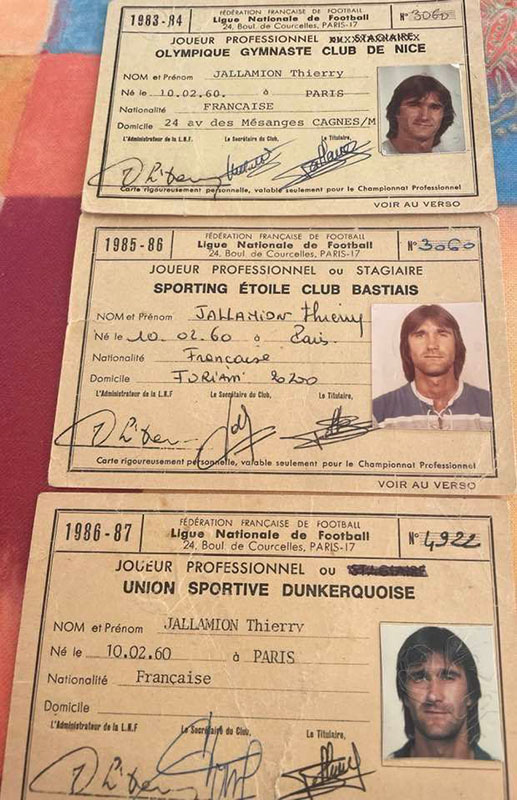 1983-84
FÉDÉRATION FRANÇAISE DE FOOTBALL
Ligue Nationale de Football
24, Boul. de Courcelles, PARIS-17
N° 3060
JOUEUR PROFESSIONNEL STAGIAIRE
OLYMPIQUE GYMNASTE CLUB DE NICE
NOM et Prénom JALLAMION Thierry
Né le 10.02.60. à PARIS
Nationalité FRANCAISE
Domicile 24 av des Mésanges CAGNES/M
L'Administrateur de la L.N.F Le Secrétaire du Club, Le Titulaire,
Carte rigoureusement personnelle, valable seulement pour le Championnat Professionnel
VOIR AU VERSO
1985-86
FÉDÉRATION FRANÇAISE DE FOOTBALL
Ligue Nationale de Football
24, Boul. de Courcelles, PARIS-17
N° 3060
JOUEUR PROFESSIONNEL OU STAGIAIRE
SPORTING ÉTOILE CLUB BASTIAIS
NOM et Prénom JALLAMION Thierry
Né le 10.02.60 à Paris
Nationalité Francaise
Domicile FURIANI 20200
L'Administrateur de la L.N.F Le Secrétaire du Club, Le Titulaire,
Carte rigoureusement personnelle, valable seulement pour le Championnat Professionnel
VOIR AU VERSO
1986-87
FÉDÉRATION FRANÇAISE DE FOOTBALL
Ligue Nationale de Football
24, Boul. de Courcelles, PARIS-17
N° 4922
JOUEUR PROFESSIONNEL OU STAGIAIRE
UNION SPORTIVE DUNKERQUOISE
NOM et Prénom JALLAMION Thierry
Né le 10.02.60 à PARIS
Nationalité Française
Domicile
L'Administrateur de la L.N.F Le Secrétaire du Club, Le Titulaire,